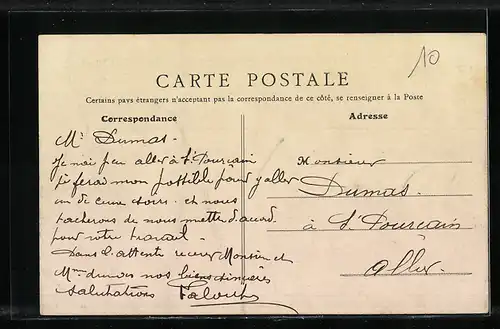 10
CARTE POSTALE
Certains pays étrangers n'acceptant pas la correspondance de ce côté, se renseigner à la Poste
Correspondance
Mr Dumas.
Je n'ai peu aller à St Pourçain
je ferai mon possible pour y aller
un de ceux jours et nous
tacherons de nous mettre d'acord
pour votre travail.
Dans l'attente recevez Monsieur et
Mme Dumas nos biens sincères
salutations
Adresse
Monsieur
Dumas.
à St Pourçain
Allier.